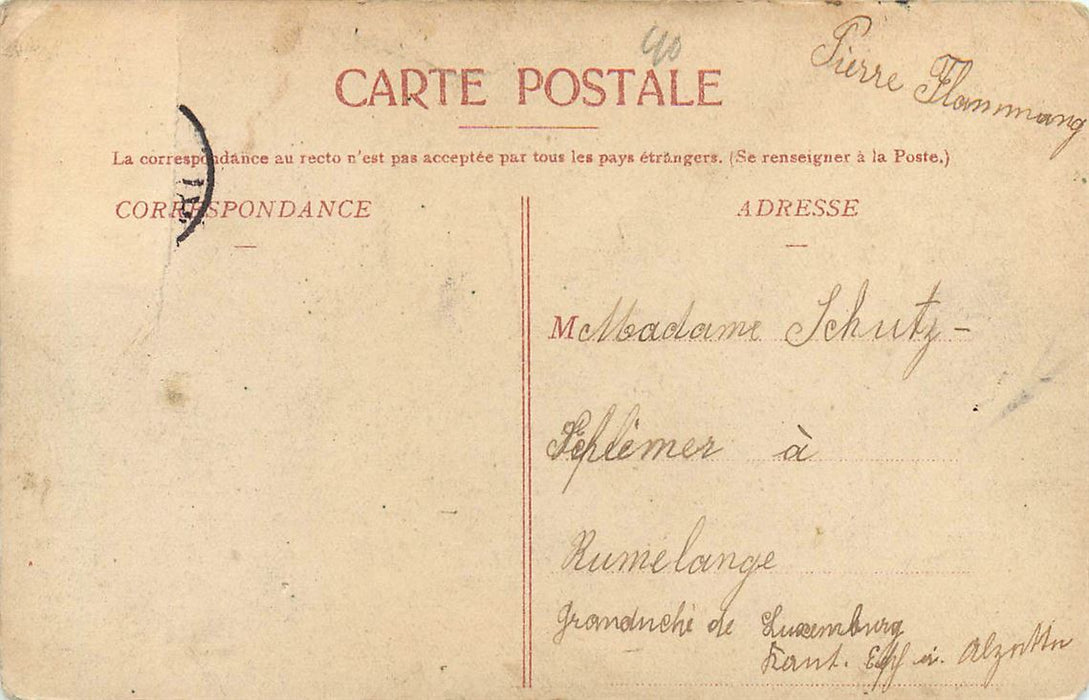 40
Pierre Flammang
CARTE POSTALE
La correspondance au recto n'est pas acceptée par tous les pays étrangers. (Se renseigner à la Poste.)
CORRESPONDANCE
ADRESSE
M Madame Schutz-
à
Rumelange
Granduché de Luxemburg
Kant. Esch a. Alzette